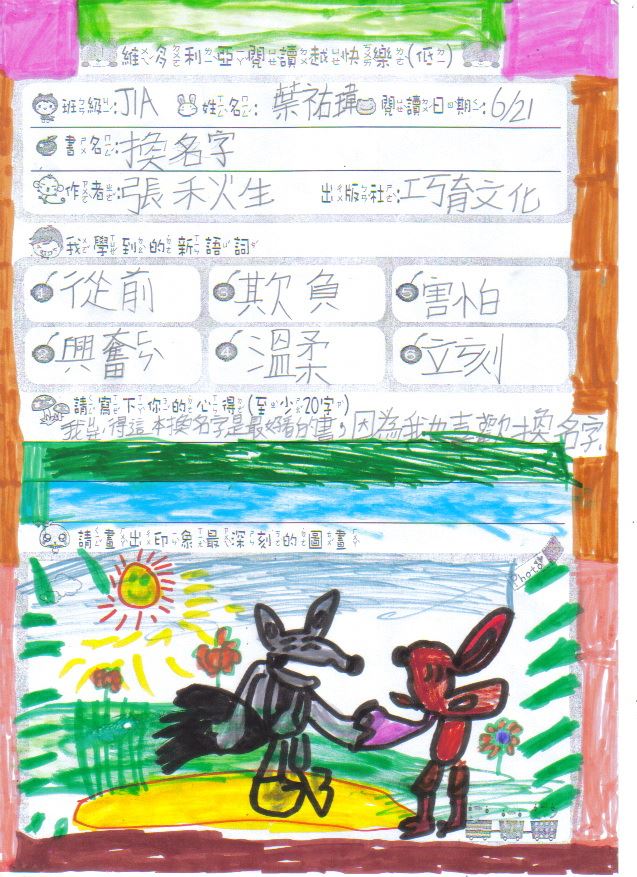 維多利亞閱讀越快樂(低)
班級:JIA 姓名:葉祐瑋 閱讀日期:6/21
書名:換名字
作者:張禾火生 出版社:巧育文化
我學到的新語詞
1 從前 3 欺負 5 害怕
2 興奮ㄈㄣ 4 溫柔 6 立刻
請寫下你的心得(至少20字)
我ㄐㄩㄝ得這本換名字是最好看的書,因為我也喜歡換名字
請畫出印象最深刻的圖畫
Photo